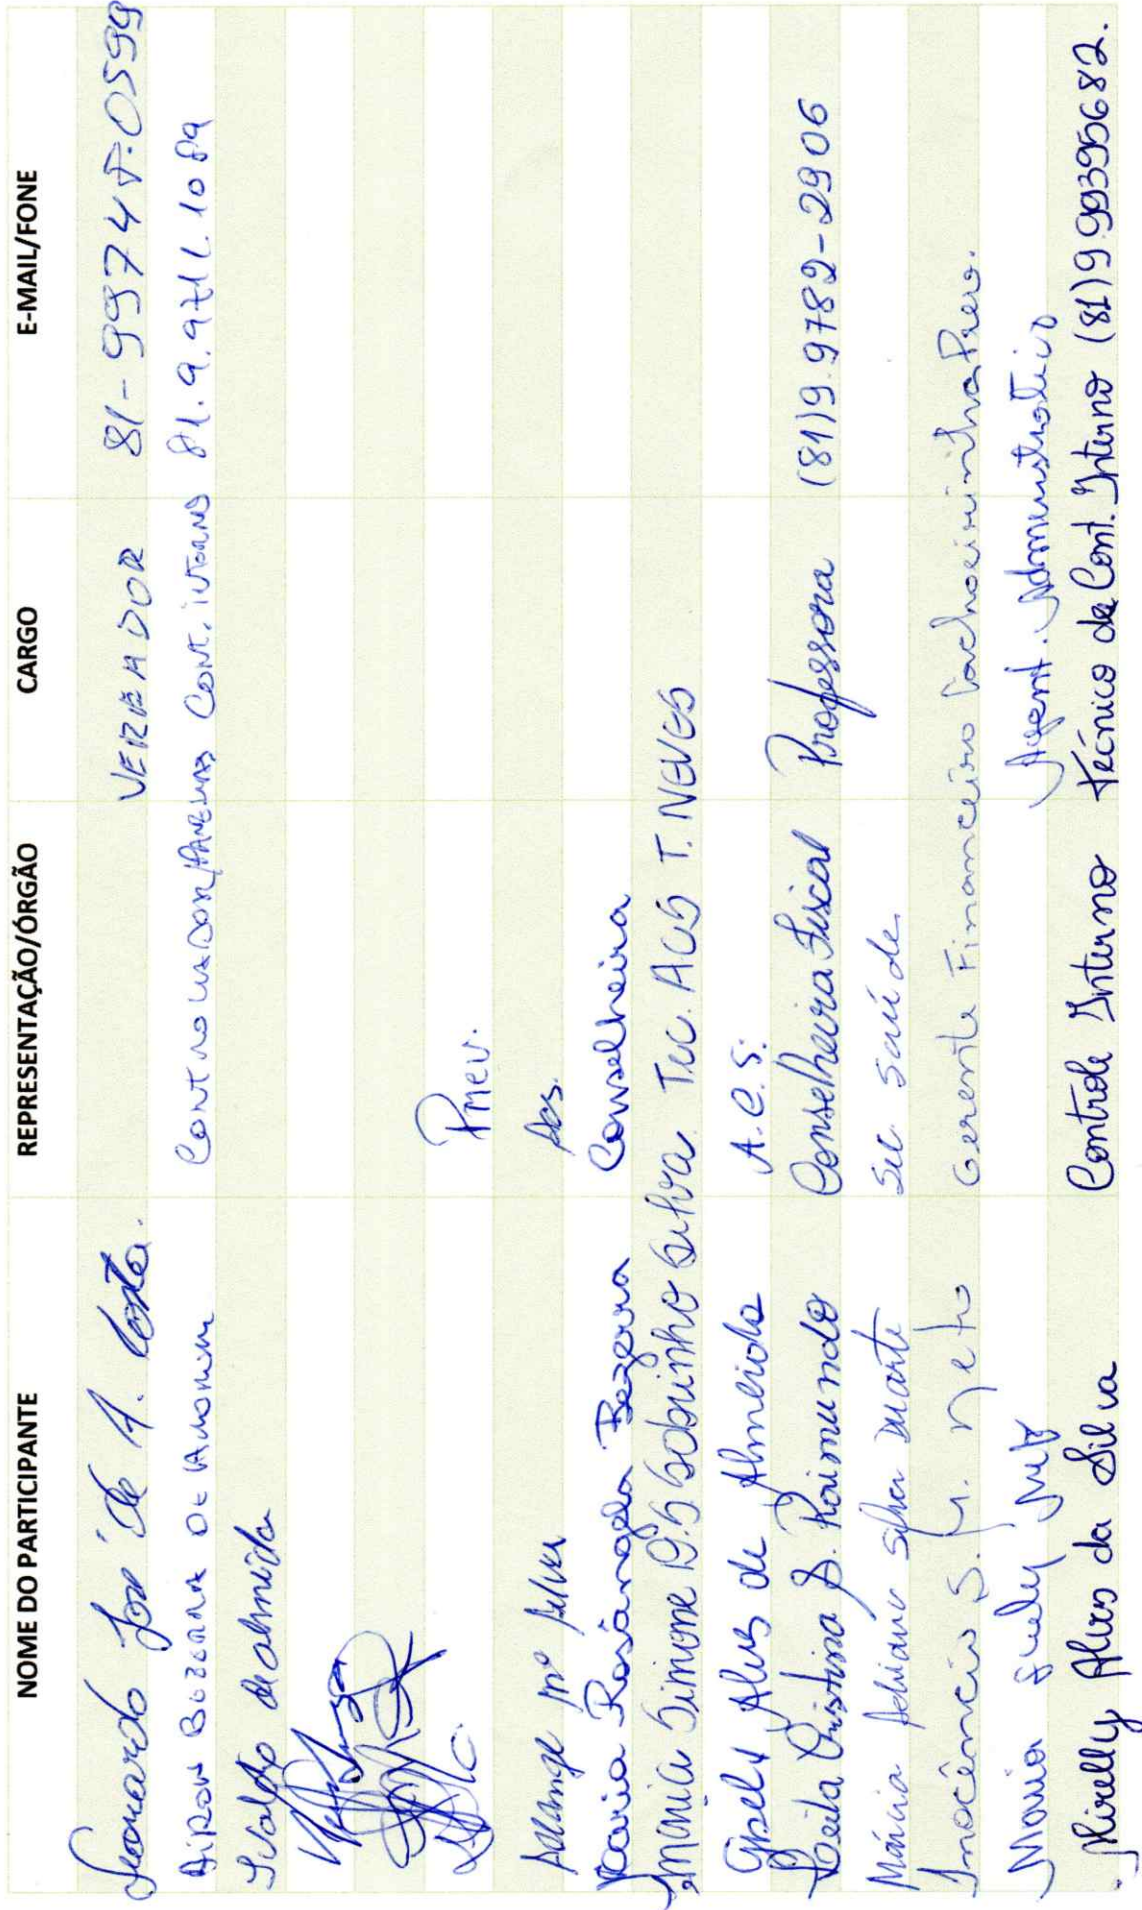 NOME DO PARTICIPANTE REPRESENTAÇÃO/ÓRGÃO CARGO E-MAIL/FONE
Leonardo José de A. Costa. VEREADOR 81-99748-0599
BEZERRA DE AMORIM CONT. INTERNO 81.9.9711.1089
Ivaldo de Almeida
Prev.
Solange Mª Silva Acs.
Maria Rosângela Bezerra Conselheira
Simone Sobrinho Silva Tec. ACS T. NEVES
Gisely Alves de Almeida A.C.S.
Leila Cristina S. Raimundo Conselheira Fiscal Professora (81)9.9782-2906
Márcia Adriana Silva Duarte Sec. Saúde
Inocêncio S. M. Neto Gerente Financeiro Cachoeirinha Prev.
Maria Suely Agent. Administrativo
Mirelly Alves da Silva Controle Interno Técnico de Cont. Interno (81)999395682.